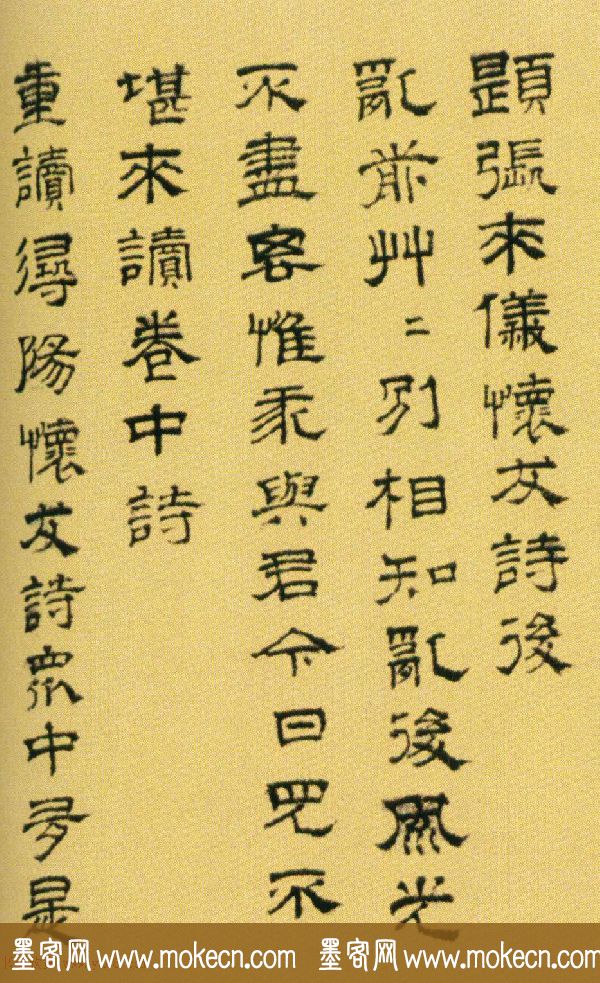 題張來儀懷友詩後
亂前艸二別相知亂後光
不盡客惟與君今日見不
堪來讀卷中詩
重讀尋陽懷友詩眾中多是
墨客网 www.mokecn.com 墨客网 www.mokecn.com